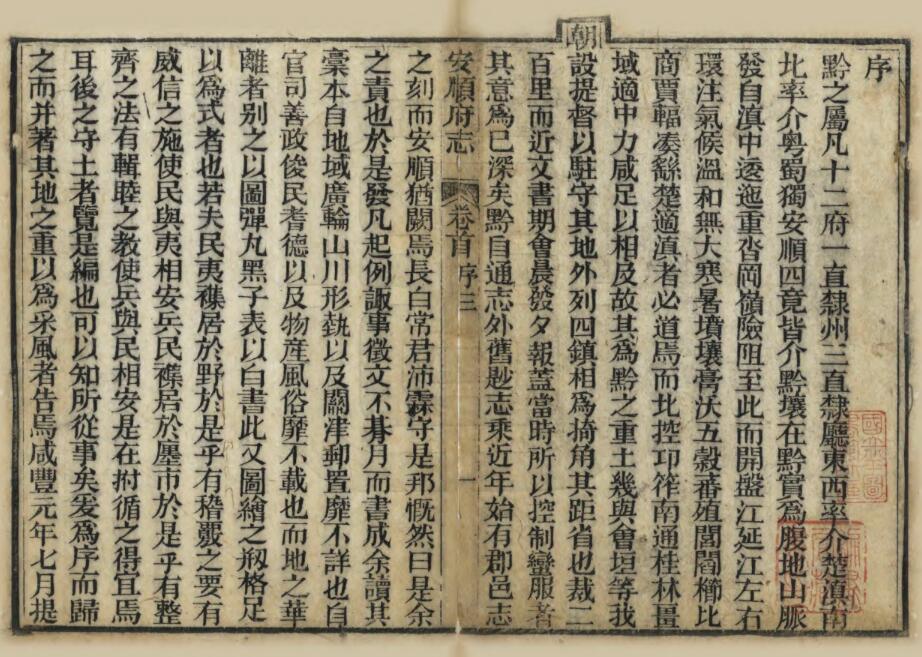 序
黔之屬凡十二府一直隸州三直隸廳東西率介楚滇南
北率介粵蜀獨安順四竟皆介黔壤在黔實爲腹地山脈
發自滇中逶迤重沓岡嶺險阻至此而開盤江延江左右
環注氣候溫和無大寒暑墳壤膏沃五穀蕃殖閭閻櫛比
商賈輻湊繇楚適滇者必道焉而北控卭筰南通桂林畺
域適中力咸足以相及故其爲黔之重土幾與會垣等我
朝
設提督以駐守其地外列四鎮相爲掎角其距省也裁二
百里而近文書期會晨發夕報蓋當時所以控制蠻服者
其意爲已深矣黔自通志外舊尟志乘近年始有郡邑志
安順府志 卷首 序三 一
之刻而安順猶闕焉長白常君沛霖守是邦慨然曰是余
之責也於是發凡起例諏事徵文不朞月而書成余讀其
稾本自地域廣輪山川形埶以及關津郵置靡不詳也自
官司善政俊民耆德以及物産風俗靡不載也而地之華
離者别之以圖彈丸黑子表以白書此又圖繪之剏格足
以爲式者也若夫民夷襍居於野於是乎有稽覈之要有
威信之施使民與夷相安兵民襍居於廛市於是乎有整
齊之法有輯睦之教使兵與民相安是在拊循之得宜焉
耳後之守土者覽是編也可以知所從事矣爰爲序而歸
之而并著其地之重以爲采風者告焉咸豐元年七月提